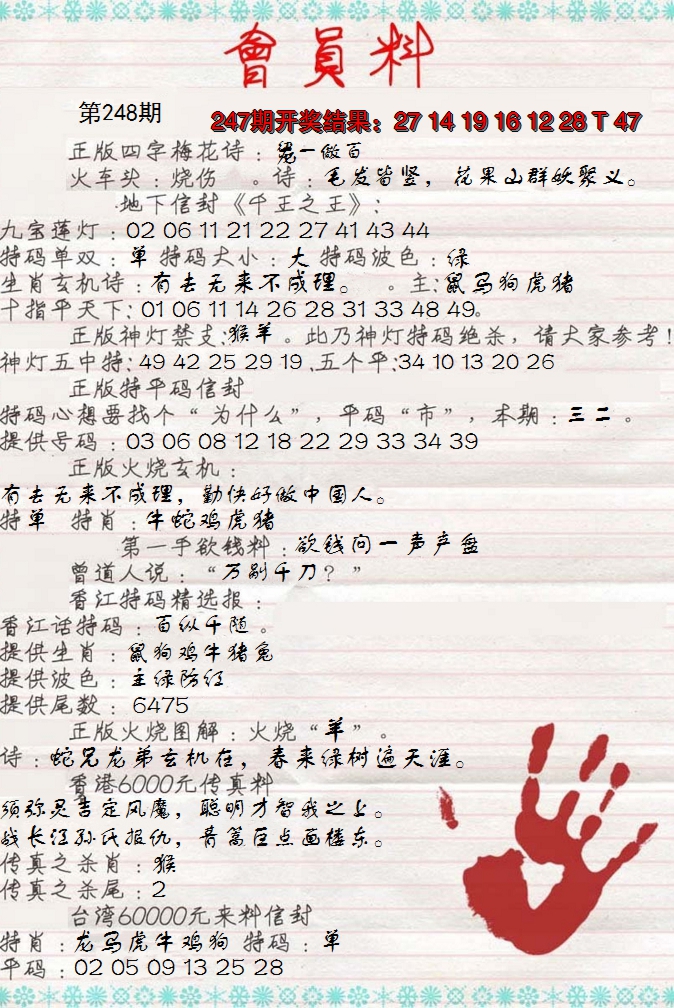 會員料
第248期
247期开奖结果：27 14 19 16 12 28 T 47
正版四字梅花诗：宠一做百
火车头：烧伤 。诗：毛发皆竖，花果山群妖聚义。
地下信封《千王之王》：
九宝莲灯：02 06 11 21 22 27 41 43 44
特码单双：单 特码大小：大 特码波色：绿
生肖玄机诗：有去无来不成理。 。主：鼠马狗虎猪
十指平天下：01 06 11 14 26 28 31 33 48 49。
正版神灯禁支：猴羊。此乃神灯特码绝杀，请大家参考！
神灯五中特：49 42 25 29 19 .五个平：34 10 13 20 26
正版特平码信封
特码心想要找个“为什么”，平码“市”，本期：三二。
提供号码：03 06 08 12 18 22 29 33 34 39
正版火烧玄机：
有去无来不成理，勤快好做中国人。
特单 特肖：牛蛇鸡虎猪
第一手欲钱料：欲钱问一声产盘
曾道人说：“万剐千刀？”
香江特码精选报：
香江话特码：百纵千随。
提供生肖：鼠狗鸡牛猪兔
提供波色：主绿防红
提供尾数：6475
正版火烧图解：火烧“羊”。
诗：蛇兄龙弟玄机在，春来绿树遍天涯。
香港6000元传真料
须弥灵吉定风魔，聪明才智我之上。
战长江孙氏报仇，青篙巨点画楼东。
传真之杀肖：猴
传真之杀尾：2
台湾60000元来料信封
特肖：龙马虎牛鸡狗 特码：单
平码：02 05 09 13 25 28